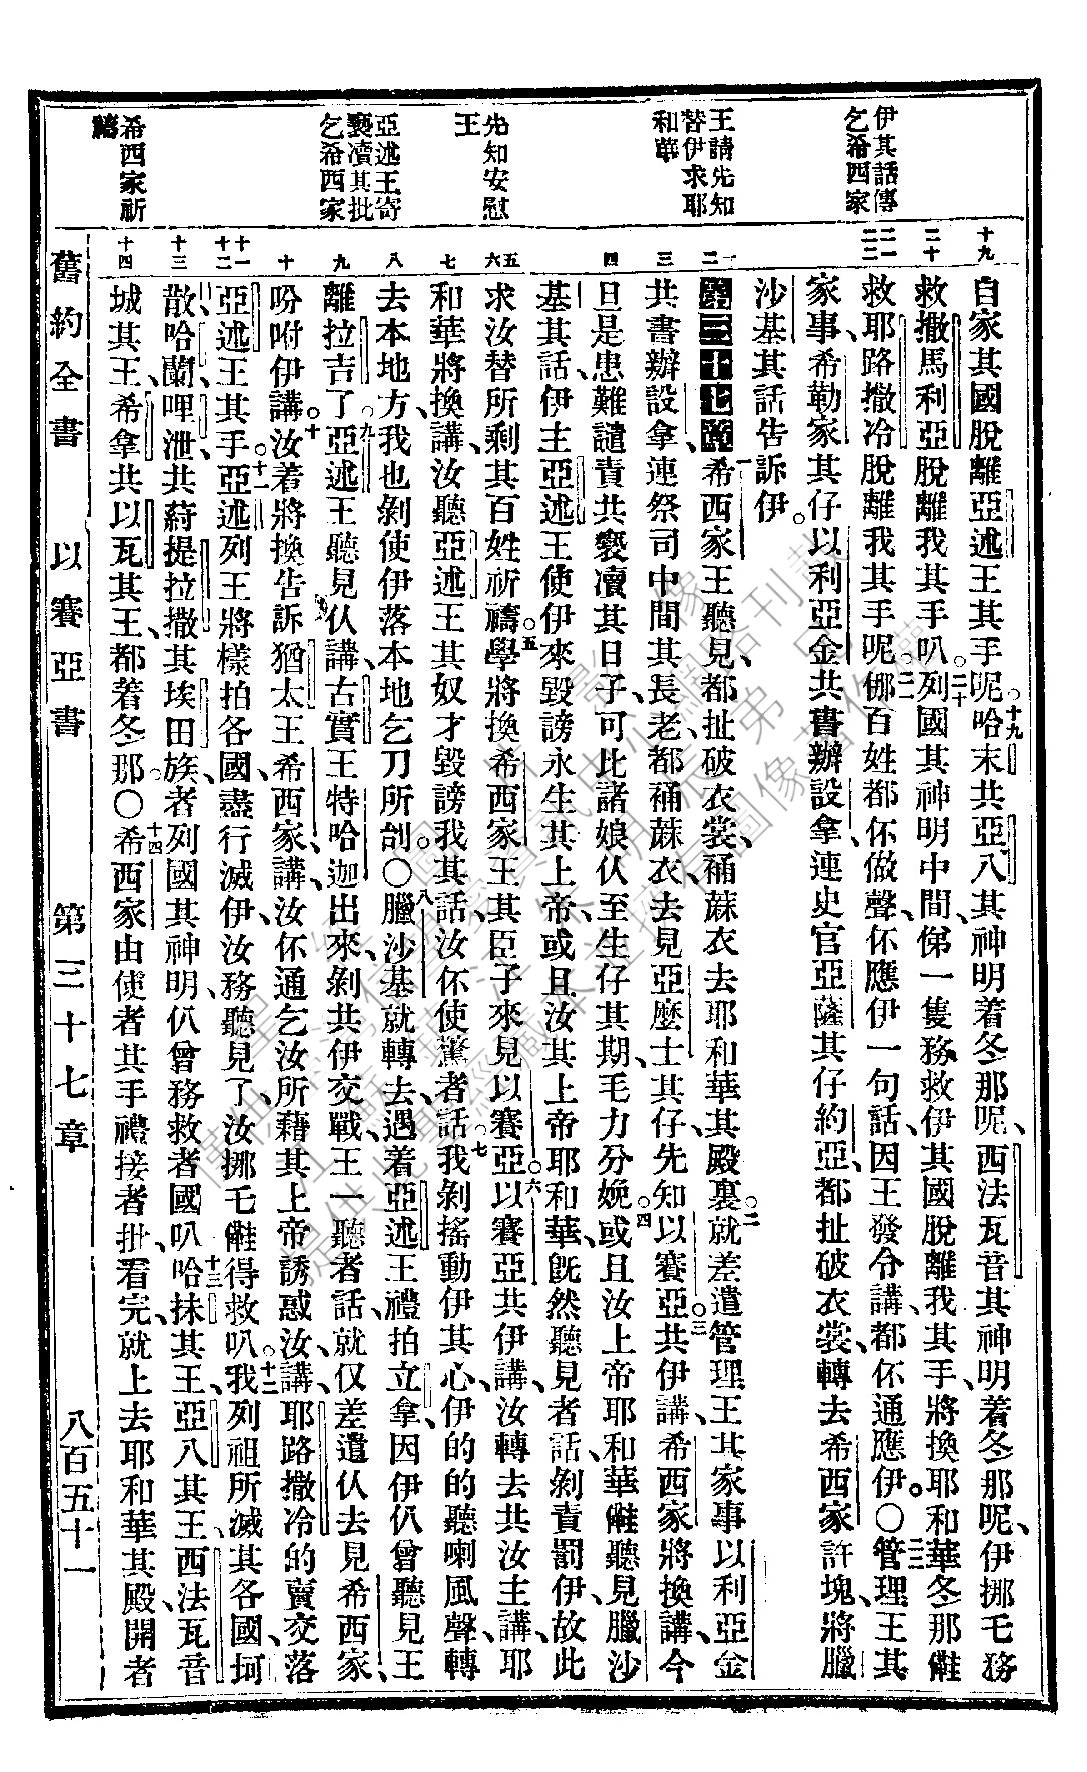 伊其話傳
乞希西家
王請先知
替伊求耶
和華
先知安慰
王
亞述王寄
褻凟其批
乞希西家
希西家祈
禱
十九
二十
二一
二二
一
二
三
四
五
六
七
八
九
十
十一
十二
十三
十四
自家其國脫離亞述王其手呢。十九哈末共亞八其神明着冬那呢、西法瓦音其神明着冬那呢、伊挪乇務
救撒馬利亞脫離我其手叭。二十列國其神明中間、俤一隻務救伊其國脫離我其手、將換耶和華冬那㑽
救耶路撒冷脫離我其手呢。二一㑚百姓都伓做聲、伓應伊一句話、因王發令講、都伓通應伊。〇二二管理王其
家事希勒家其仔以利亞金共書辦設拿連史官亞薩其仔約亞、都扯破衣裳、轉去希西家許塊、將臘
沙基其話告訴伊。
第三十七章 一希西家王聽見、都扯破衣裳、𥙷蔴衣去耶和華其殿裏。二就差遣管理王其家事以利亞金
共書辦設拿、連祭司中間其長老、都𥙷蔴衣、去見亞麼士其仔、先知以賽亞。三共伊講、希西家將換講、今
旦是患難譴責共褻凟其日子、可比諸娘仈至生仔其期、毛力分娩。四或且汝上帝耶和華㑽聽見臘沙
基其話、伊主亞述王使伊來毀謗永生其上帝、或且汝其上帝耶和華、旣然聽見者話、剝責罰伊、故此
求汝替所剩其百姓祈禱。五學將換希西家王其臣子來見以賽亞。六以賽亞共伊講、汝轉去共汝主講、耶
和華將換講、汝聽亞述王其奴才毀謗我其話、汝伓使驚者話。七我剝搖動伊其心、伊的的聽喇風聲轉
去本地方、我也剝使伊落本地乞刀所刣。〇八臘沙基就轉去、遇着亞述王禮拍立拿、因伊仈曾聽見王
離拉吉了。九亞述王聽見仈講、古實王特哈迦出來、剝共伊交戰、王一聽者話、就仅差遣仈去見希西家、
吩咐伊講。十汝着將換告訴猶太王希西家講、汝伓通乞汝所藉其上帝誘惑汝、講、耶路撒冷的賣交落
亞述王其手。十一亞述列王將樣拍各國、盡行滅伊、汝務聽見了、汝挪乇㑽得救叭。十二我列祖所滅其各國、坷
散、哈蘭、哩泄、共䔟提拉撒其埃田族、者列國其神明、仈曾務救者國叭。十三哈抹其王、亞八其王、西法瓦音
城其王、希拿共以瓦其王、都着冬那。〇十四希西家由使者其手禮接者批、看完、就上去耶和華其殿、開者
舊約全書 以賽亞書 第三十七章 八百五十一